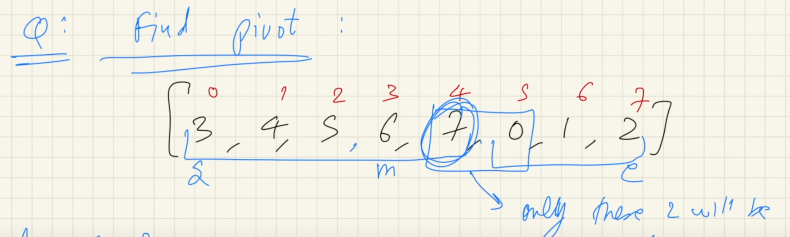 Q: Find pivot :
0 1 2 3 4 5 6 7
[3, 4, 5, 6, 7, 0, 1, 2]
s m e
only these 2 will be